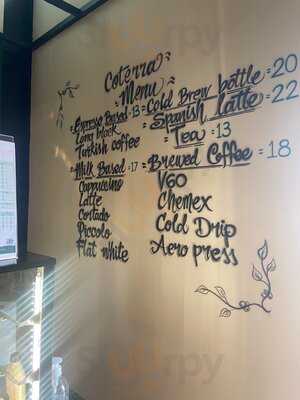 Coterra
Menu
Espresso Based = 13
Long black
Turkish coffee
Milk Based = 17
Cappuccino
Latte
Cortado
Piccolo
Flat white
Cold Brew bottle = 20
Spanish latte = 22
Tea = 13
Brewed Coffee = 18
V60
Chemex
Cold Drip
Aero press